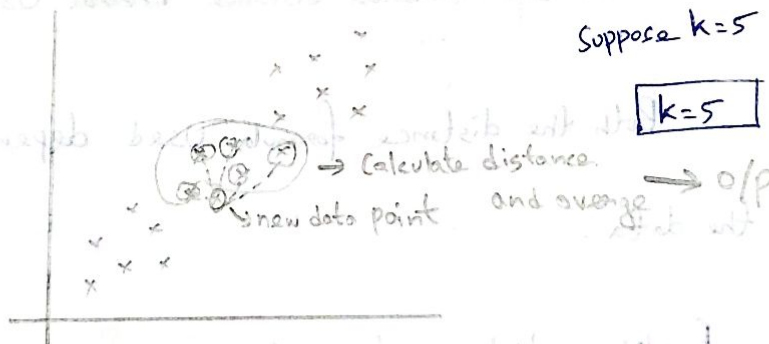 Suppose k=5
k=5
→ Calculate distance.
and average → O/P
new data point